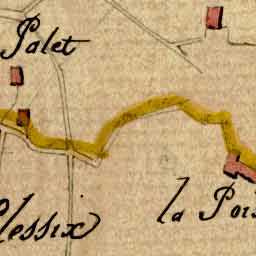 Palet
lessix
la Pois